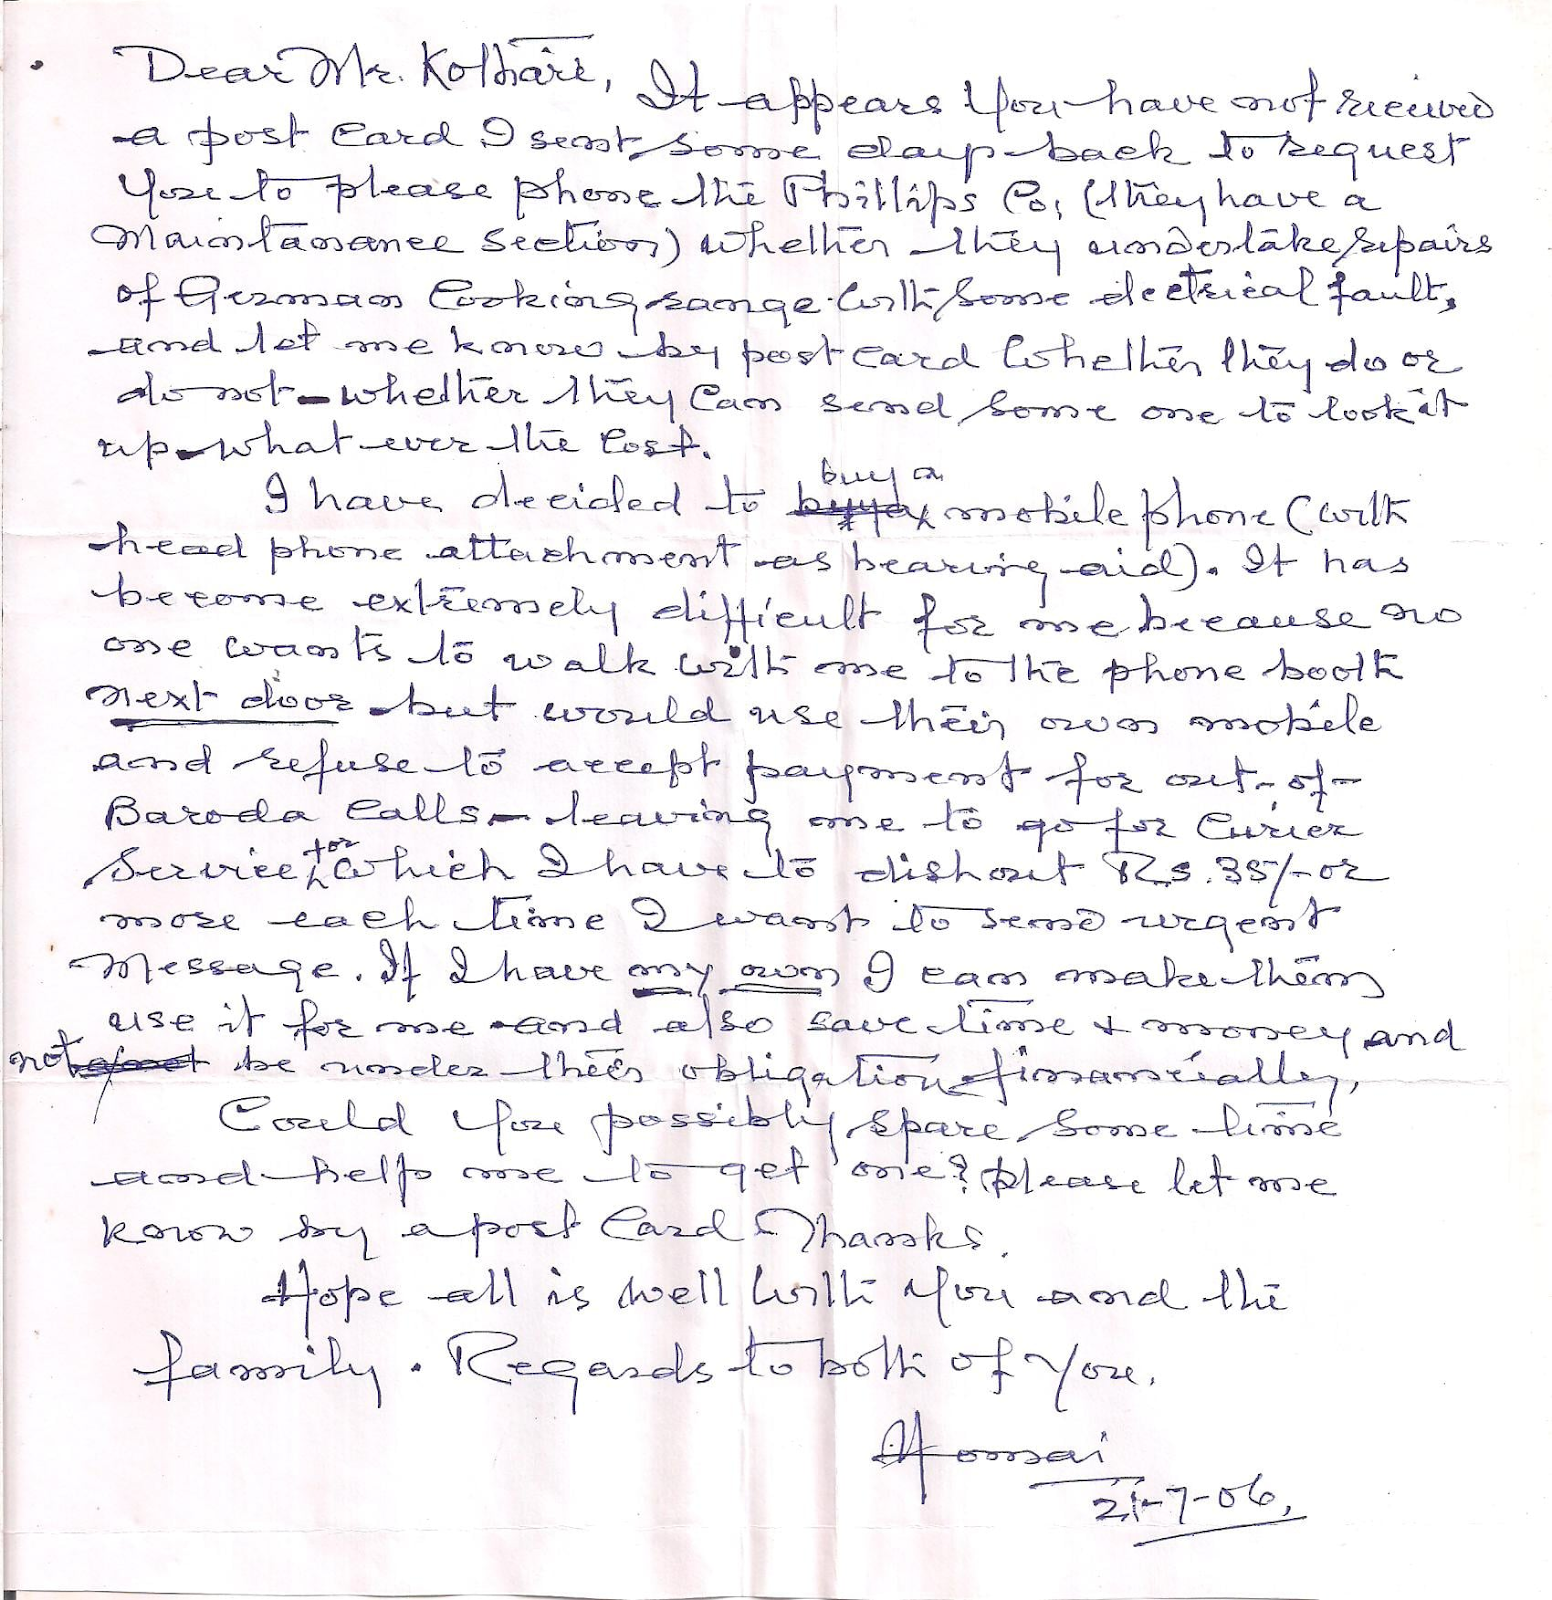 Dear Mr. Kothari, It appears you have not received
a post card I sent some days back to request
you to please phone the Phillips Co, (they have a
Maintanance section) whether they undertake repairs
of German Cooking range with some electrical fault,
and let me know by post card whether they do or
do not - whether they can send some one to look it
up - what ever the cost.
I have decided to buy a mobile phone (with
head phone attachment as hearing aid). It has
become extremely difficult for me because no
one wants to walk with me to the phone booth
next door but would use their own mobile
and refuse to accept payment for out-of-
Baroda calls - leaving me to go for Curier
Service, for which I have to dishout Rs. 35/- or
more each time I want to send urgent
Message. If I have my own I can make them
use it for me and also save time & money and
not be under their obligation financially.
Could you possibly spare some time
and help me to get one? please let me
know by a post card Thanks.
Hope all is well with you and the
family. Regards to both of you.
Homai
21-7-06,